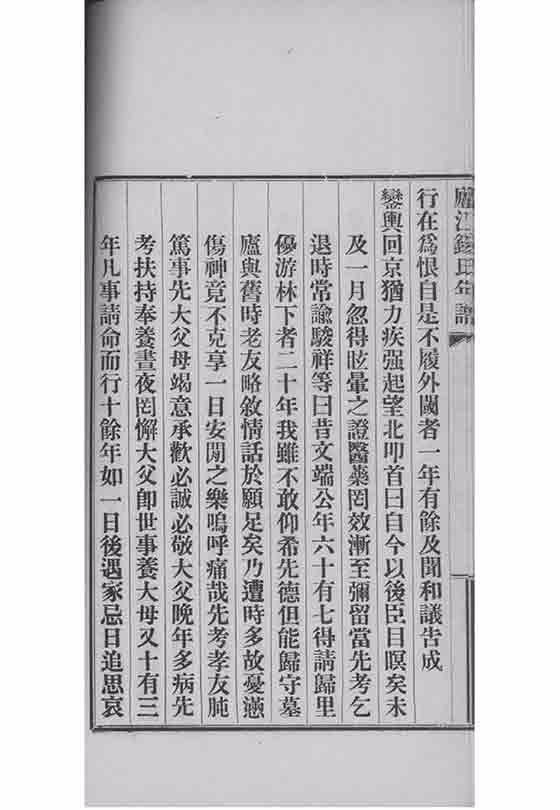 廬江錢氏年譜
行在為恨自是不履外閾者一年有餘及聞和議告成
鑾輿回京猶力疾强起望北叩首曰自今以後臣目瞑矣未
及一月忽得眩暈之證醫藥罔效漸至彌留當先考乞
退時常諭駿祥等曰昔文端公年六十有七得請歸里
優游林下者二十年我雖不敢仰希先德但能歸守墓
廬與舊時老友略敘情話於願足矣乃遭時多故憂懣
傷神竟不克享一日安閒之樂嗚呼痛哉先考孝友肫
篤事先大父母竭意承歡必誠必敬大父晚年多病先
考扶持奉養晝夜罔懈大父卽世事養大母又十有三
年凡事請命而行十餘年如一日後遇家忌日追思哀